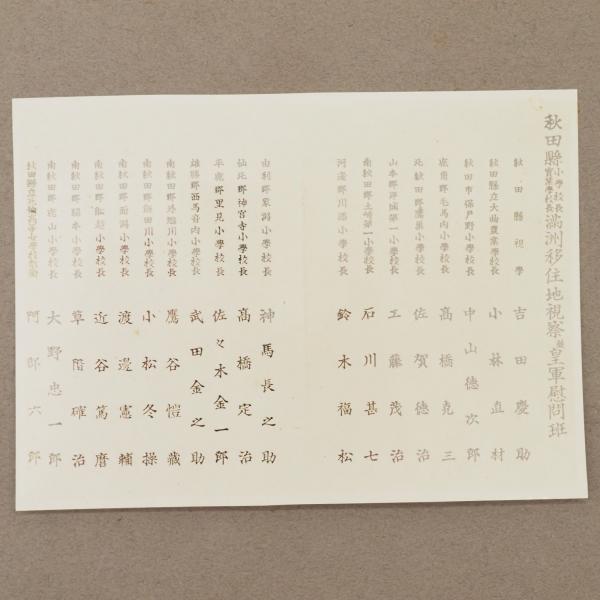 秋田縣小學校長實業學校長滿洲移住地視察並皇軍慰問班
秋田縣視學 吉田慶助
秋田縣立大曲農業學校長 小林直村
秋田市保戸野小學校長 中山德次郎
鹿角郡毛馬内小學校長 高橋克三
北秋田郡鷹巢小學校長 佐賀德治
山本郡渟城第一小學校長 工藤茂治
南秋田郡土崎第一小學校長 石川甚七
河邊郡川添小學校長 鈴木福松
由利郡象潟小學校長 神馬長之助
仙北郡神宮寺小學校長 高橋定治
平鹿郡里見小學校長 佐々木金一郎
雄勝郡西馬音内小學校長 武田金之助
南秋田郡外旭川小學校長 鷹谷愷藏
南秋田郡飯田川小學校長 小松冬操
南秋田郡面潟小學校長 渡邊憲輔
南秋田郡船越小學校長 近谷篤麿
南秋田郡脇本小學校長 草階確治
南秋田郡鹿山小學校長 大野忠一郎
秋田縣立 阿部六郎